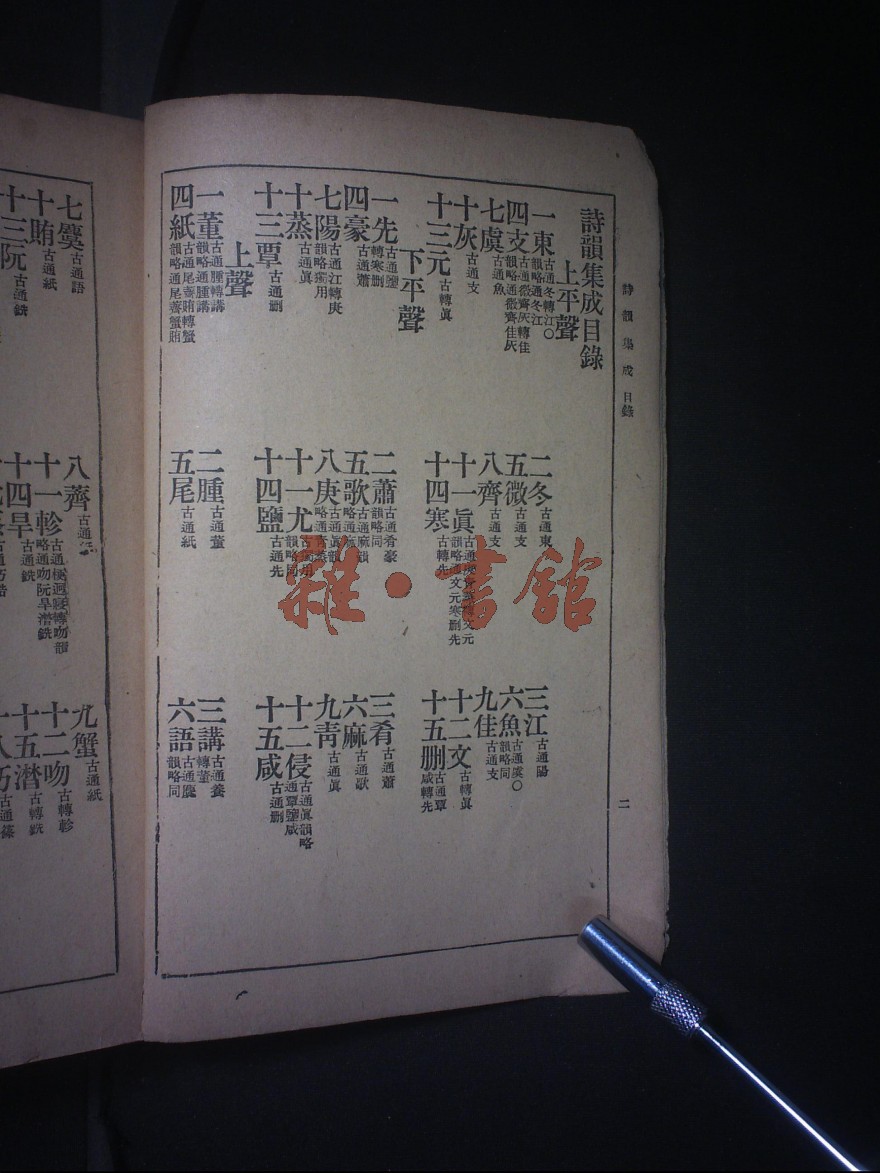 詩韻集成目錄
二
詩韻集成目錄
上平聲
一東 古通冬轉江○韻略通冬江
二冬 古通東
三江 古通陽
四支 古通微齊灰轉佳 韻略通微齊佳灰
五微 古通支
六魚 古通虞○韻略同
七虞 古通魚
八齊 古通支
九佳 古通支
十灰 古通支
十一眞 韻略通文元寒刪先
十二文 古轉眞
十三元 古轉眞
十四寒 古轉先
十五刪 古通覃咸轉先
下平聲
一先 古通鹽轉寒刪
二蕭 古通肴豪 韻略同
三肴 古通蕭
四豪 古通蕭
五歌 古通麻韻略同
六麻 古通歌
七陽 古通江轉庚 韻略獨用
八庚 古通眞韻略通青蒸
九靑 古通眞
十蒸 古通眞
十一尤 古獨用 韻略同
十二侵 古通眞韻略通覃鹽咸
十三覃 古通刪
十四鹽 古通先
十五咸 古通刪
上聲
一董 古通腫轉講 韻略通腫講
二腫 古通董
三講 古通養轉董
四紙 古通尾薺賄轉蟹 韻略通尾薺蟹賄
五尾 古通紙
六語 古通麌 韻略同
七麌 古通語
八薺 古通
九蟹 古通紙
十賄 古通紙
十一軫 略通吻阮旱潸銑
十二吻 古轉軫
十三阮 古通銑
十四旱 古通銑
十五潸 古轉銑
巧 古通篠
雜·書舘